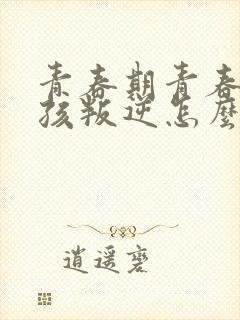 青春期青春
孩叛逆怎麼
逍遥裹